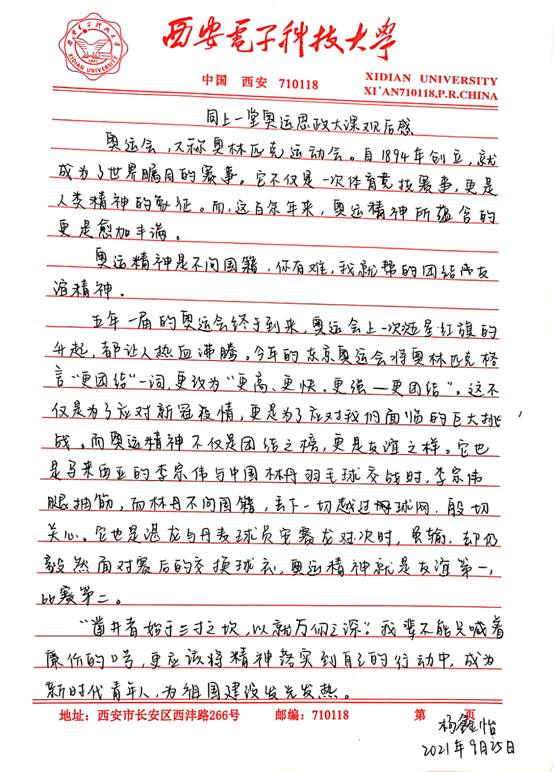 西安電子科技大學
XIDIAN UNIVERSITY
中国 西安 710118
XIDIAN UNIVERSITY
XI'AN710118,P.R.CHINA
同上一堂奥运思政大课观后感
奥运会,又称奥林匹克运动会。自1894年创立,就
成为了世界瞩目的赛事。它不仅是一次体育竞技赛事,更是
人类精神的象征。而,这百余年来,奥运精神所蕴含的
更是愈加丰满。
奥运精神是不问国籍,你有难,我就帮的团结与友
谊精神。
五年一届的奥运会终于到来,奥运会上一次次五星红旗的
升起,都让人热血沸腾。今年的东京奥运会将奥林匹克格
言“更团结”一词,更改为“更高、更快、更强—更团结”。这不
仅是为了应对新冠疫情,更是为了应对我们面临的巨大挑
战。而奥运精神不仅是团结之榜,更是友谊之样。它也
是马来西亚的李宗伟与中国林丹羽毛球交战时,李宗伟
腿抽筋,而林丹不问国籍,丢下一切越过球网,殷切
关心。它也是谌龙与丹麦球员安赛龙对决时,虽输,却仍
毅然面对赛后的交换球衣,奥运精神就是友谊第一,
比赛第二。
“凿井者始于三寸之坎,以就万仞之深”。我辈不能只喊着
廉价的口号,更应该将精神落实到自己的行动中,成为
新时代青年人,为祖国建设发光发热。
地址:西安市长安区西沣路266号 邮编:710118 第 页
杨鑫怡
2021年9月25日